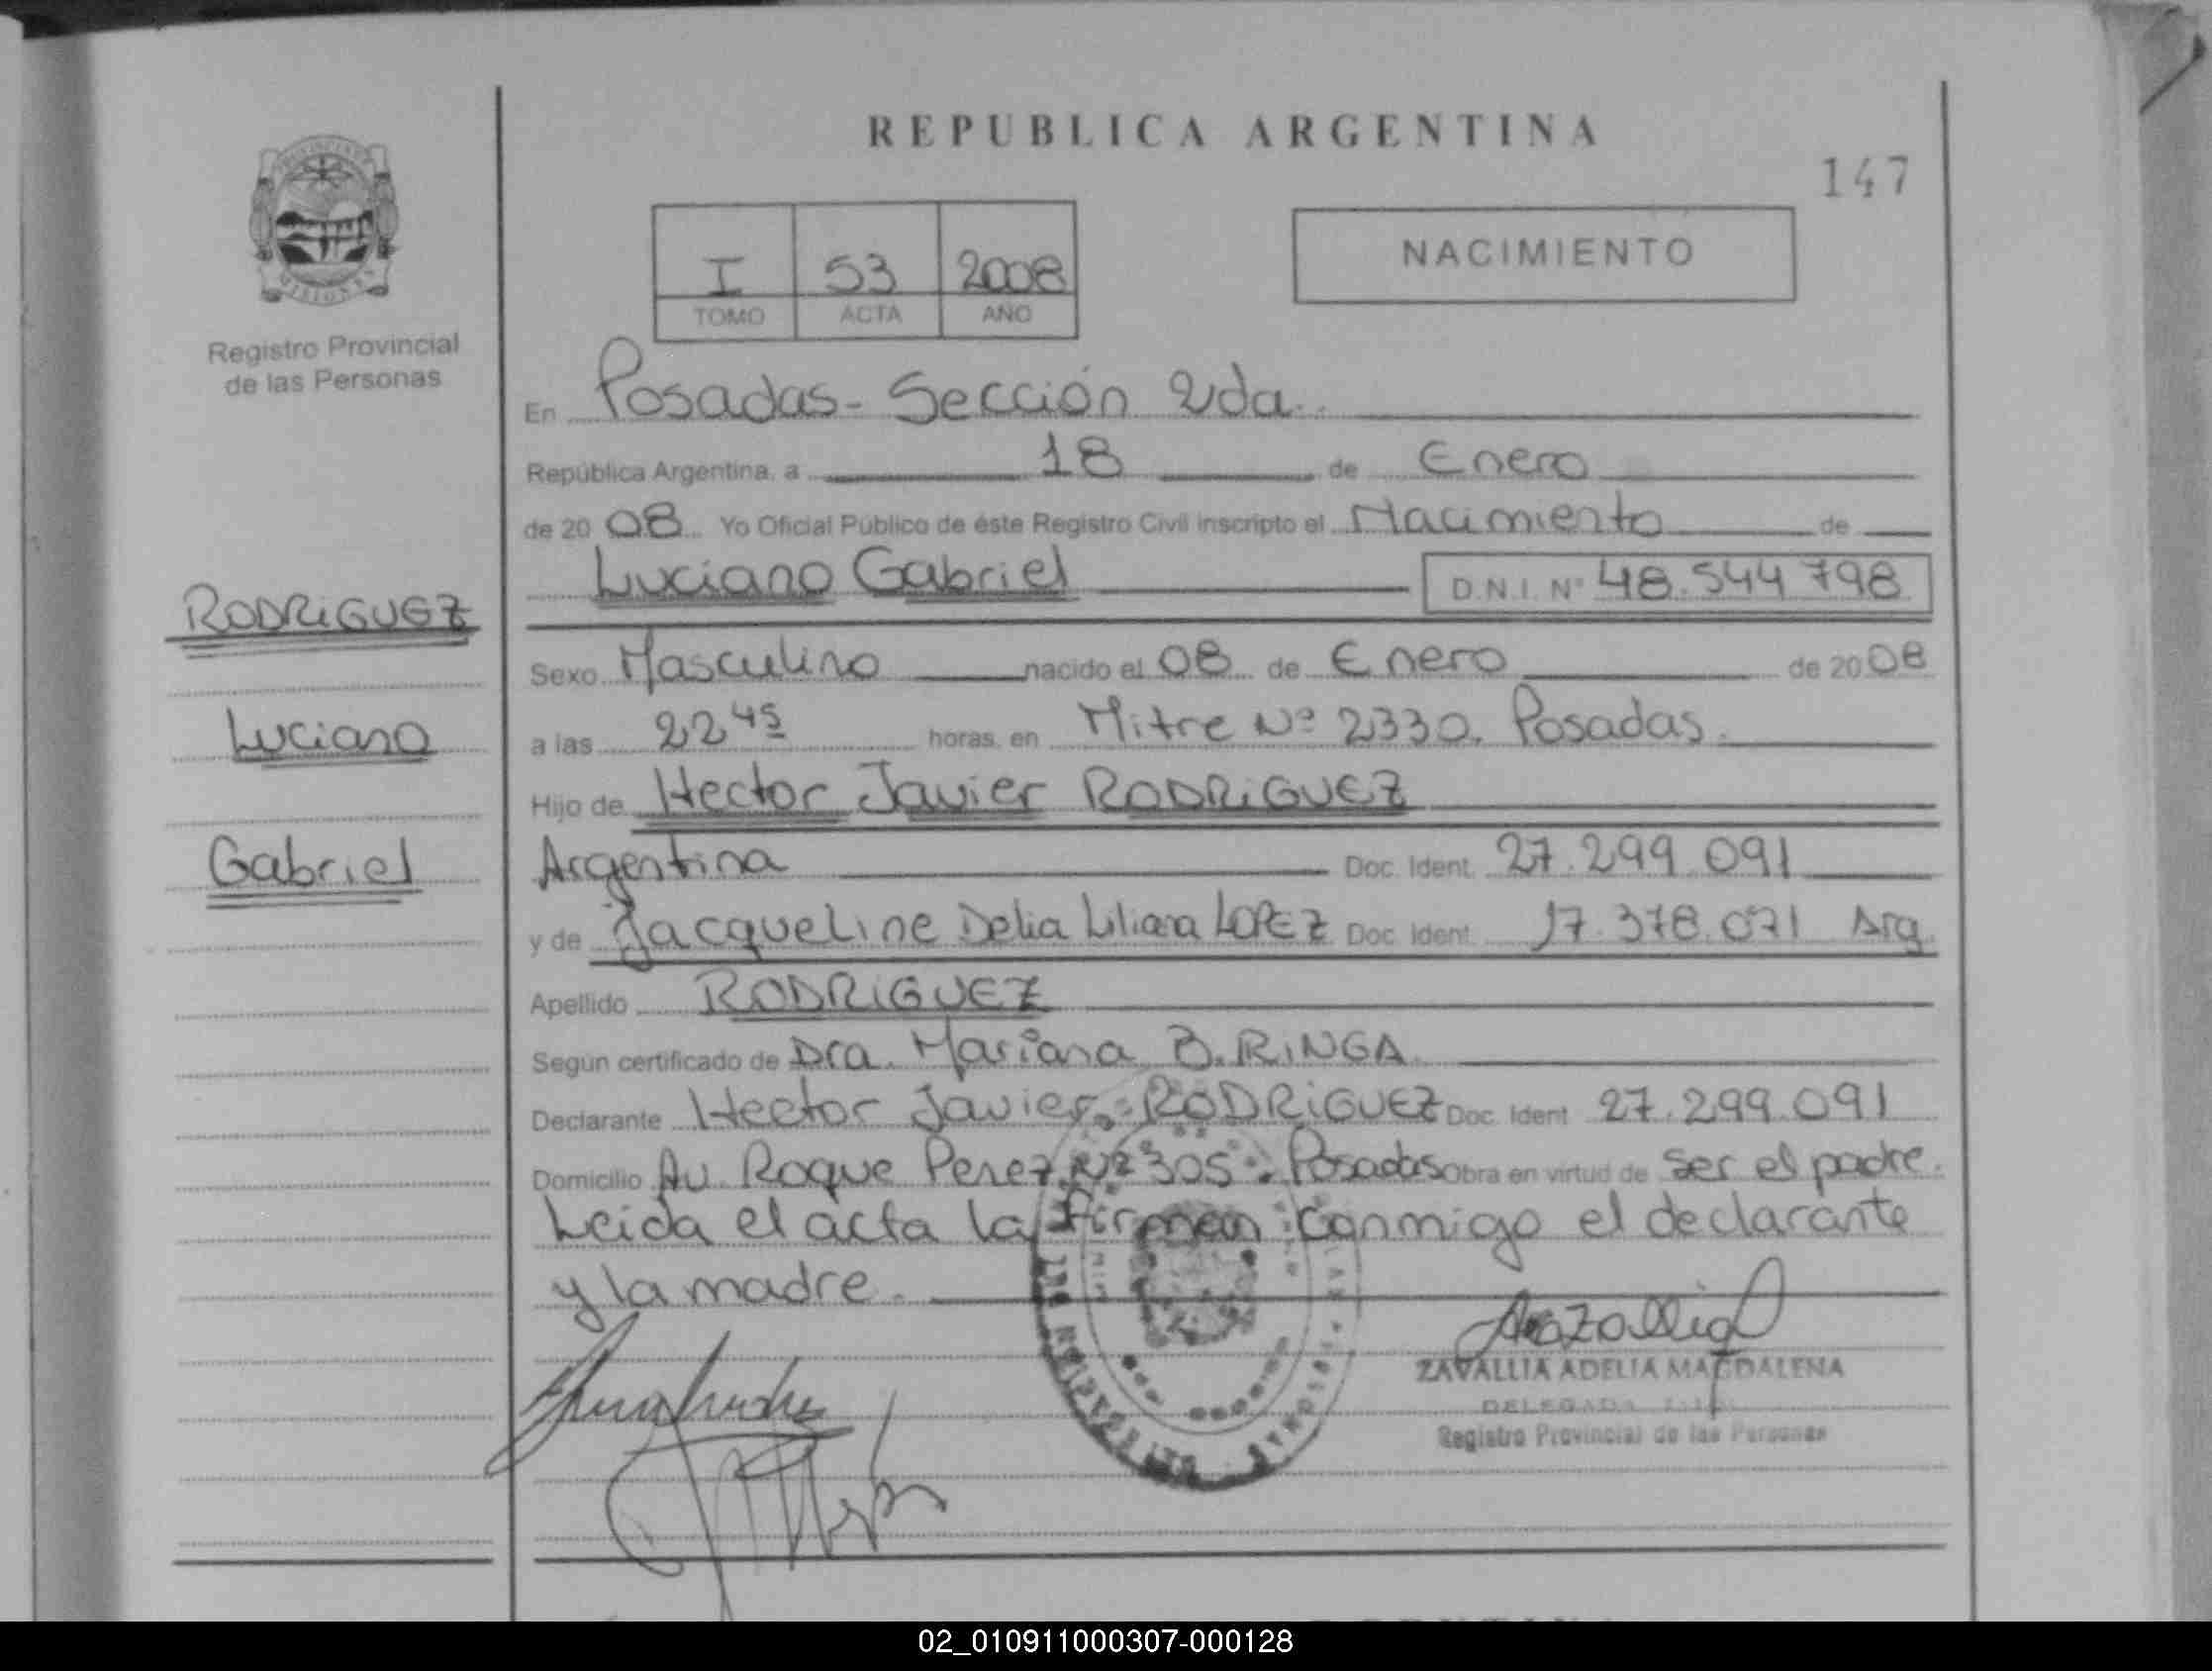 REPUBLICA ARGENTINA
147
NACIMIENTO
I 53 2008
TOMO ACTA AÑO
Registro Provincial
de las Personas
RODRIGUEZ
Luciano
Gabriel
En Posadas - Sección 2da.
República Argentina, a 18 de Enero
de 20 08 Yo Oficial Público de éste Registro Civil inscripto el Nacimiento de
Luciano Gabriel D.N.I. Nº 48.544 798
Sexo Masculino nacido el 08 de Enero de 20 08
a las 22 45 horas, en Mitre Nº 2330. Posadas.
Hijo de Hector Javier RODRIGUEZ
Argentina Doc. Ident. 27.299.091
y de Jacqueline Delia Liliana LOPEZ Doc. Ident. 17.378.071 Arg.
Apellido RODRIGUEZ
Según certificado de Dra. Mariana B. RINGA
Declarante Hector Javier RODRIGUEZ Doc. Ident. 27.299.091
Domicilio Av. Roque Perez Nº 305. Posadas Obra en virtud de ser el padre.
Leida el acta la firman conmigo el declarante
y la madre.
ZAVALLIA ADELIA MAGDALENA
DELEGADA
Registro Provincial de las Personas
02_010911000307-000128